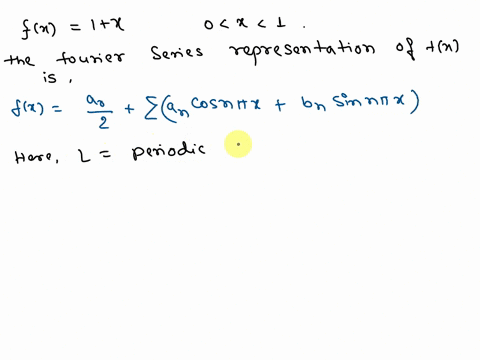 f(x) = 1+x 0 < x < 1 .
the fourier series representation of f(x)
is,
f(x) = a₀/2 + Σ(aₙ cosnπx + bₙ sin nπx)
Here, L = periodic